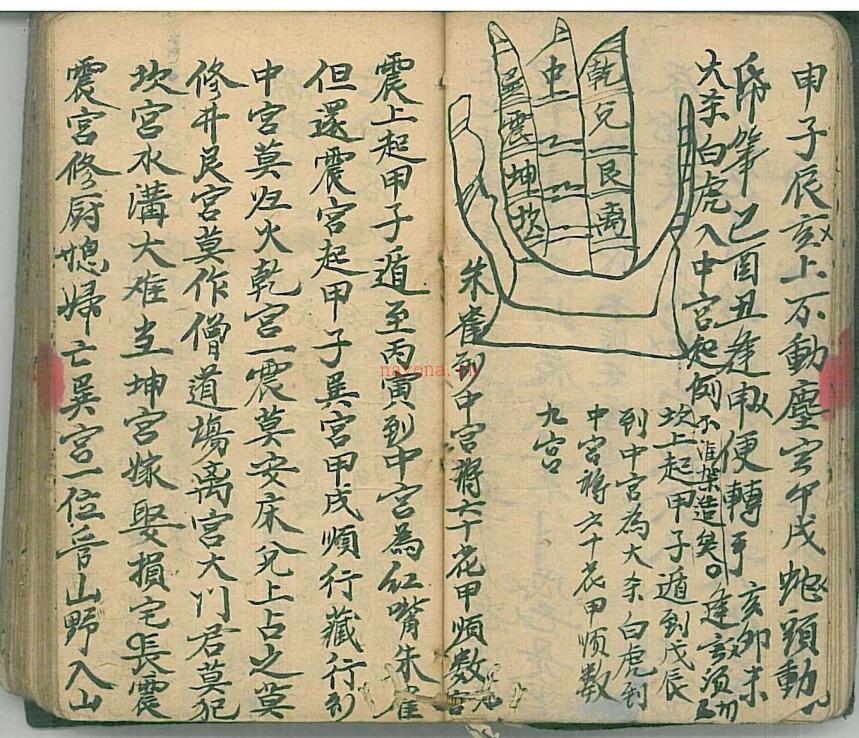 申子辰亥上不動塵寅午戌蛇頭動
筆巳酉丑逢申便轉手亥卯未
大杀白虎入中宮起例不准架造矣。逢寅須
坎上起甲子遁到戊辰
到中宮為大杀白虎到
中宮将六十花甲順数
九宮
乾
兌
艮
离
中
巽
震
坤
坎
朱雀到中宮将六十花甲順数九宮
震上起甲子遁至丙寅到中宮為红嘴朱雀
但還震宮起甲子巽宮甲戌順行藏行到
中宮莫归火乾宮一震莫安床兌上占之莫
修井艮宮莫作僧道塲离宮大门君莫犯
坎宮水溝大难当坤宮嫁娶損宅長震
震宮修厨媳婦亡巽宮一位管山野入山
nayona.cn